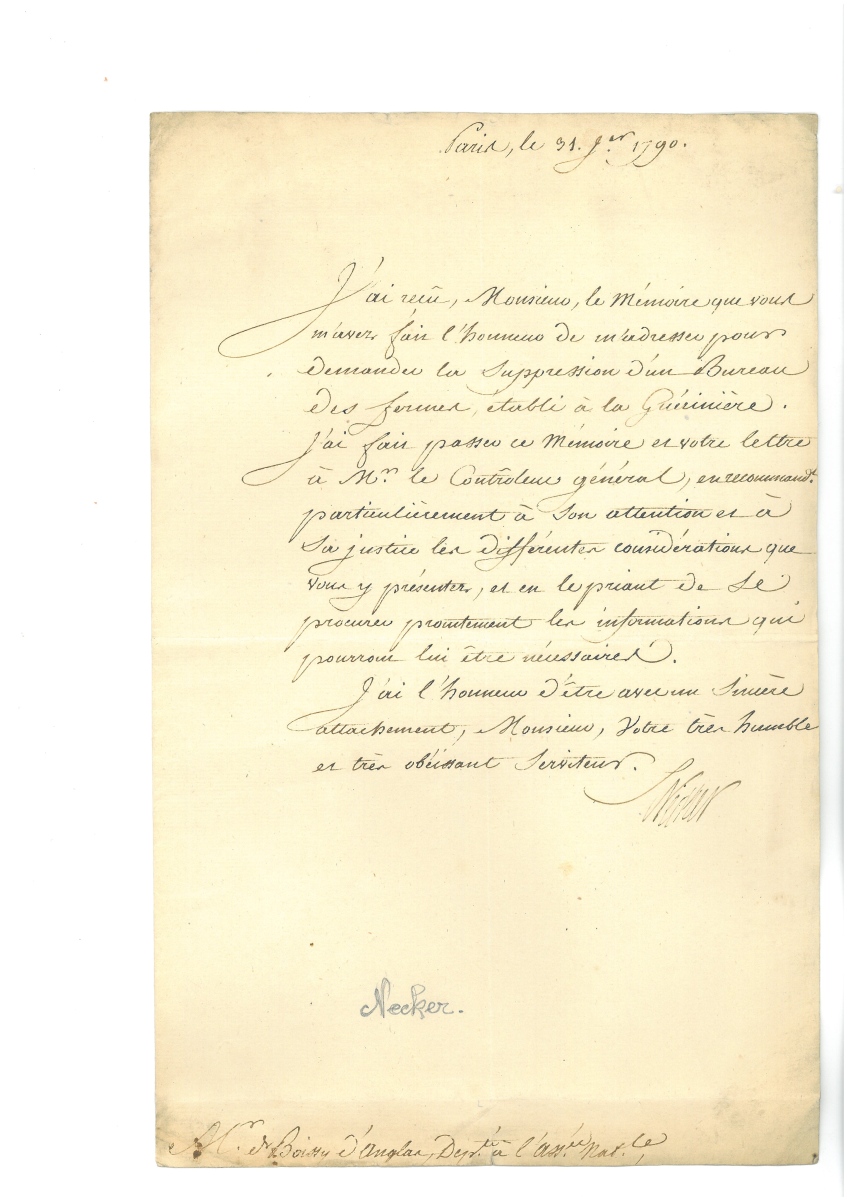 Paris, le 31. Jer 1790.
J'ai reçu, Monsieur, le Mémoire que vous
m'avez fait l'honneur de m'adresser pour
demander la Suppression d'un Bureau
des fermes, établi à la Guérinière.
J'ai fait passer ce Mémoire et votre lettre
à Mr. le Contrôleur général, en recommandt.
particulièrement à Son attention et à
Sa justice les différentes considérations que
vous y présentez, et en le priant de Se
procurer promtement les informations qui
pourront lui être nécessaires.
J'ai l'honneur d'être avec un Sincère
attachement, Monsieur, Votre très humble
et très obéissant Serviteur.
Necker
Necker.
Mr. de Boissy d'Anglas, Dép.té à l'ass.ée Nat.le,